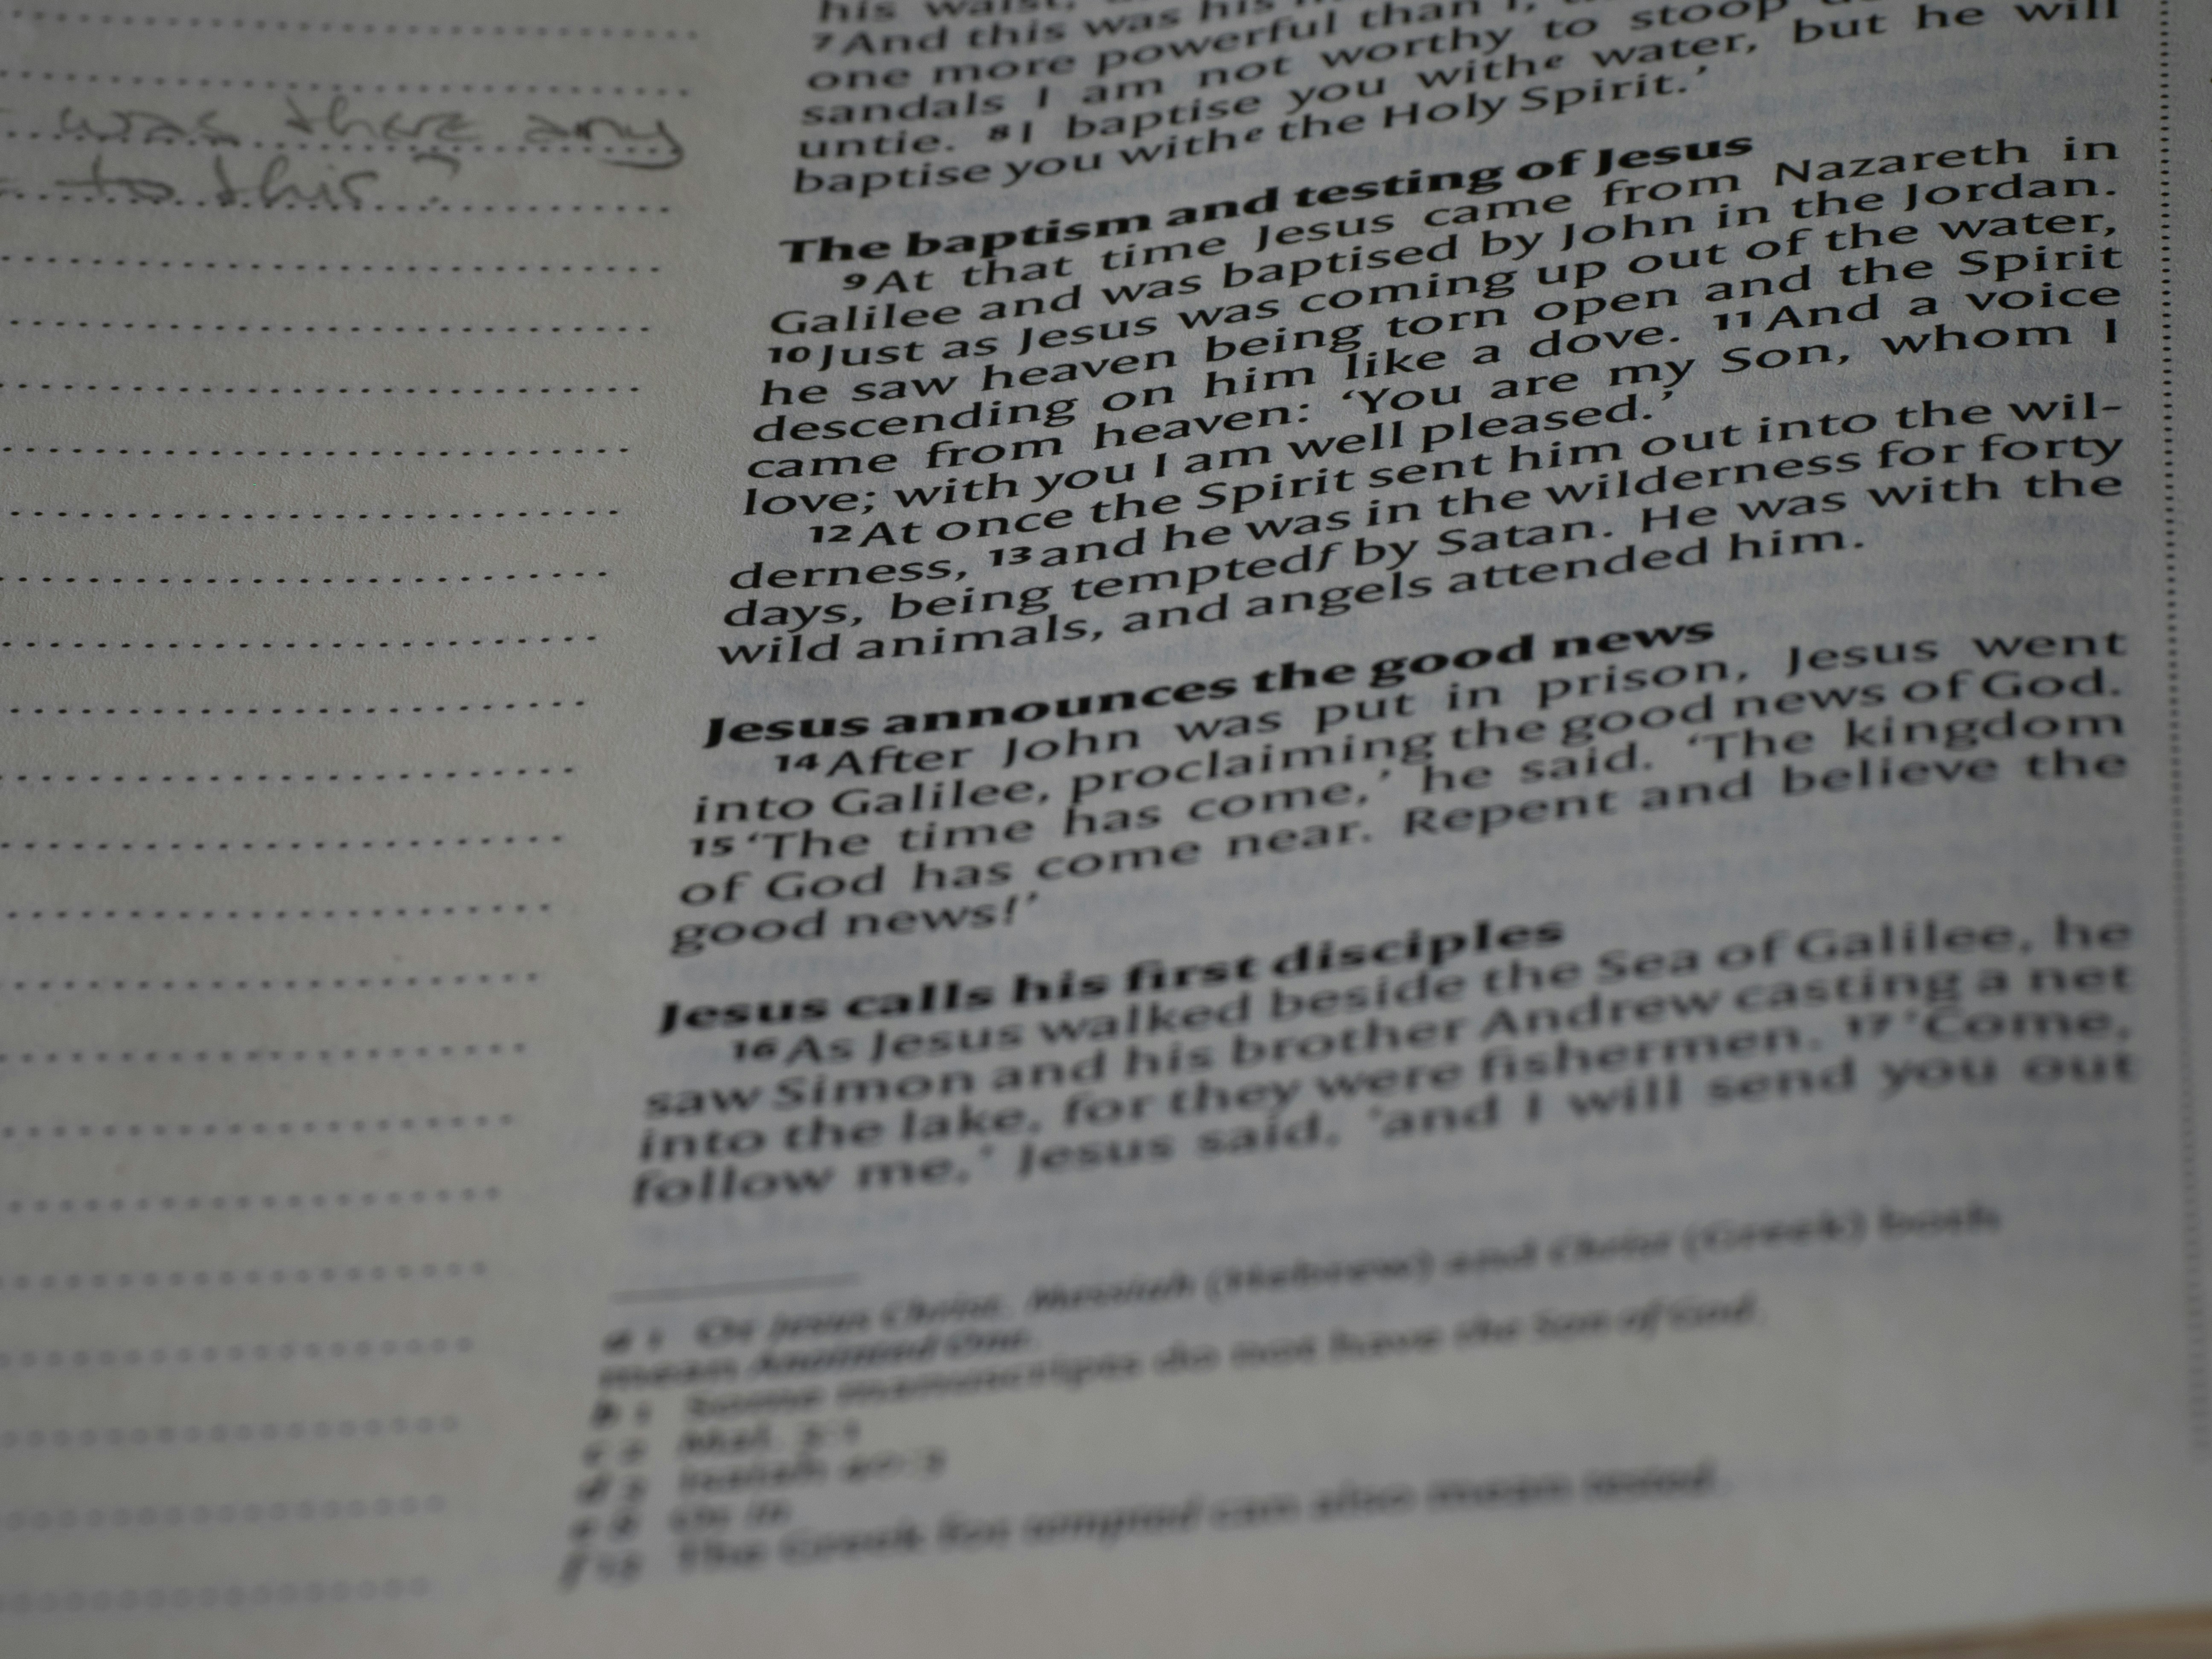 was there any
to this?
his waist.
7 And this was his
one more powerful than I,
sandals I am not worthy to stoop
untie. 8 I baptise you with e water, but he will
baptise you with e the Holy Spirit.’
The baptism and testing of Jesus
9 At that time Jesus came from Nazareth in
Galilee and was baptised by John in the Jordan.
10 Just as Jesus was coming up out of the water,
he saw heaven being torn open and the Spirit
descending on him like a dove. 11 And a voice
came from heaven: ‘You are my Son, whom I
love; with you I am well pleased.’
12 At once the Spirit sent him out into the wil-
derness, 13 and he was in the wilderness for forty
days, being tempted f by Satan. He was with the
wild animals, and angels attended him.
Jesus announces the good news
14 After John was put in prison, Jesus went
into Galilee, proclaiming the good news of God.
15 ‘The time has come,’ he said. ‘The kingdom
of God has come near. Repent and believe the
good news!’
Jesus calls his first disciples
16 As Jesus walked beside the Sea of Galilee, he
saw Simon and his brother Andrew casting a net
into the lake, for they were fishermen. 17 ‘Come,
follow me,’ Jesus said, ‘and I will send you out
a 1 Or Jesus Christ. Messiah (Hebrew) and Christ (Greek) both
mean Anointed One.
b 1 Some manuscripts do not have the Son of God.
c 2 Mal. 3:1
d 3 Isaiah 40:3
e 8 Or in
f 13 The Greek for tempted can also mean tested.